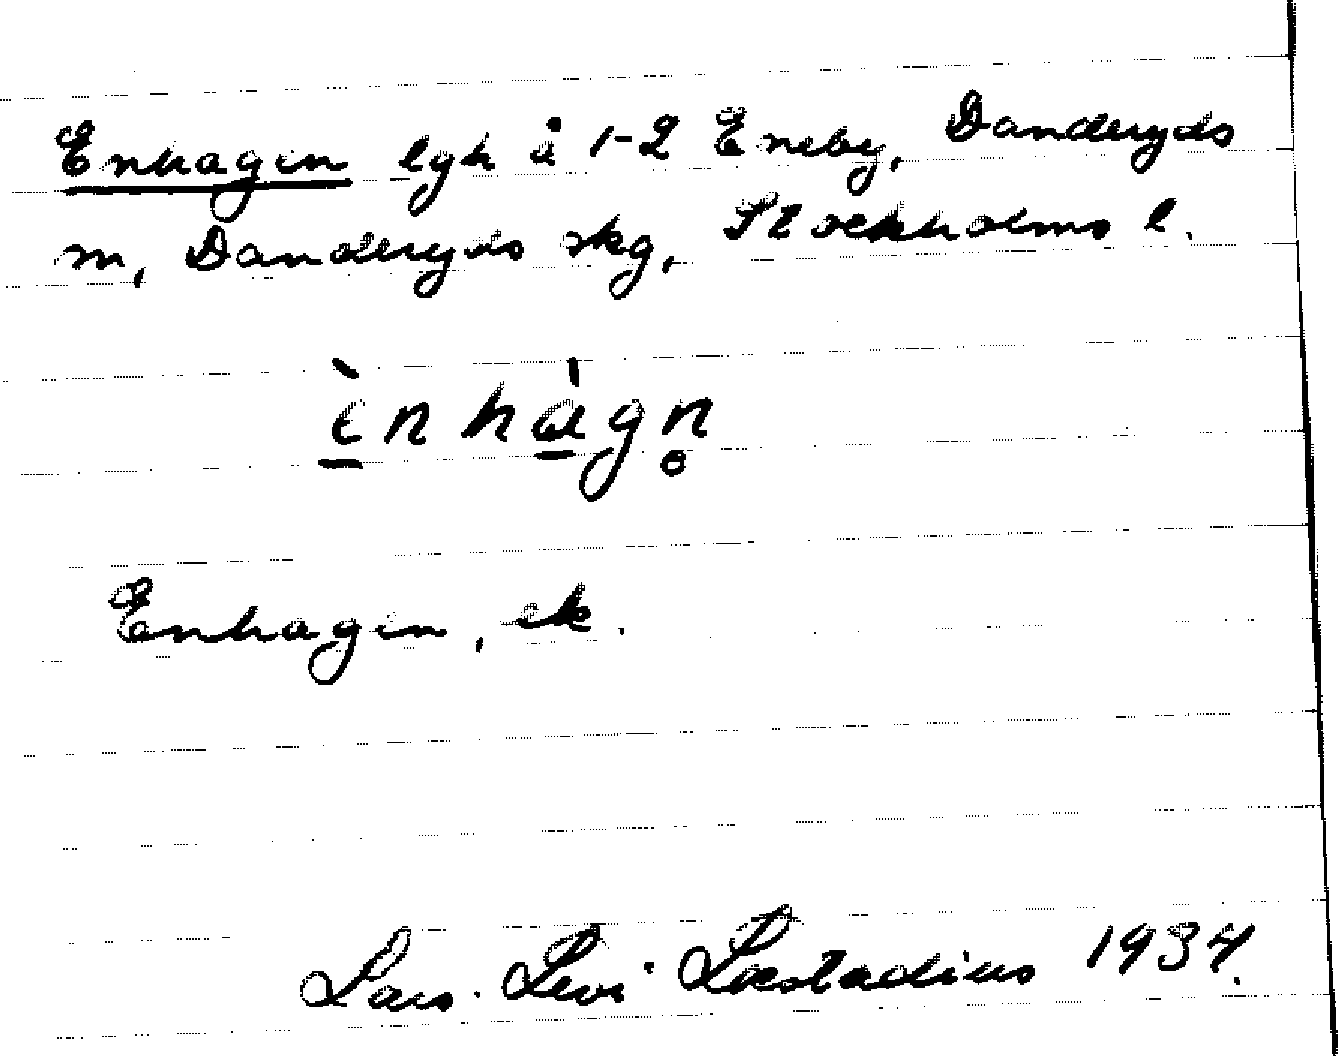 Enhagen lgh å 1-2 Eneby, Danderyds
sn, Danderyds skg, Stockholms l.
ὲnhàgn̥
Enhagen, ek.
Lars. Levi Læstadius 1934.